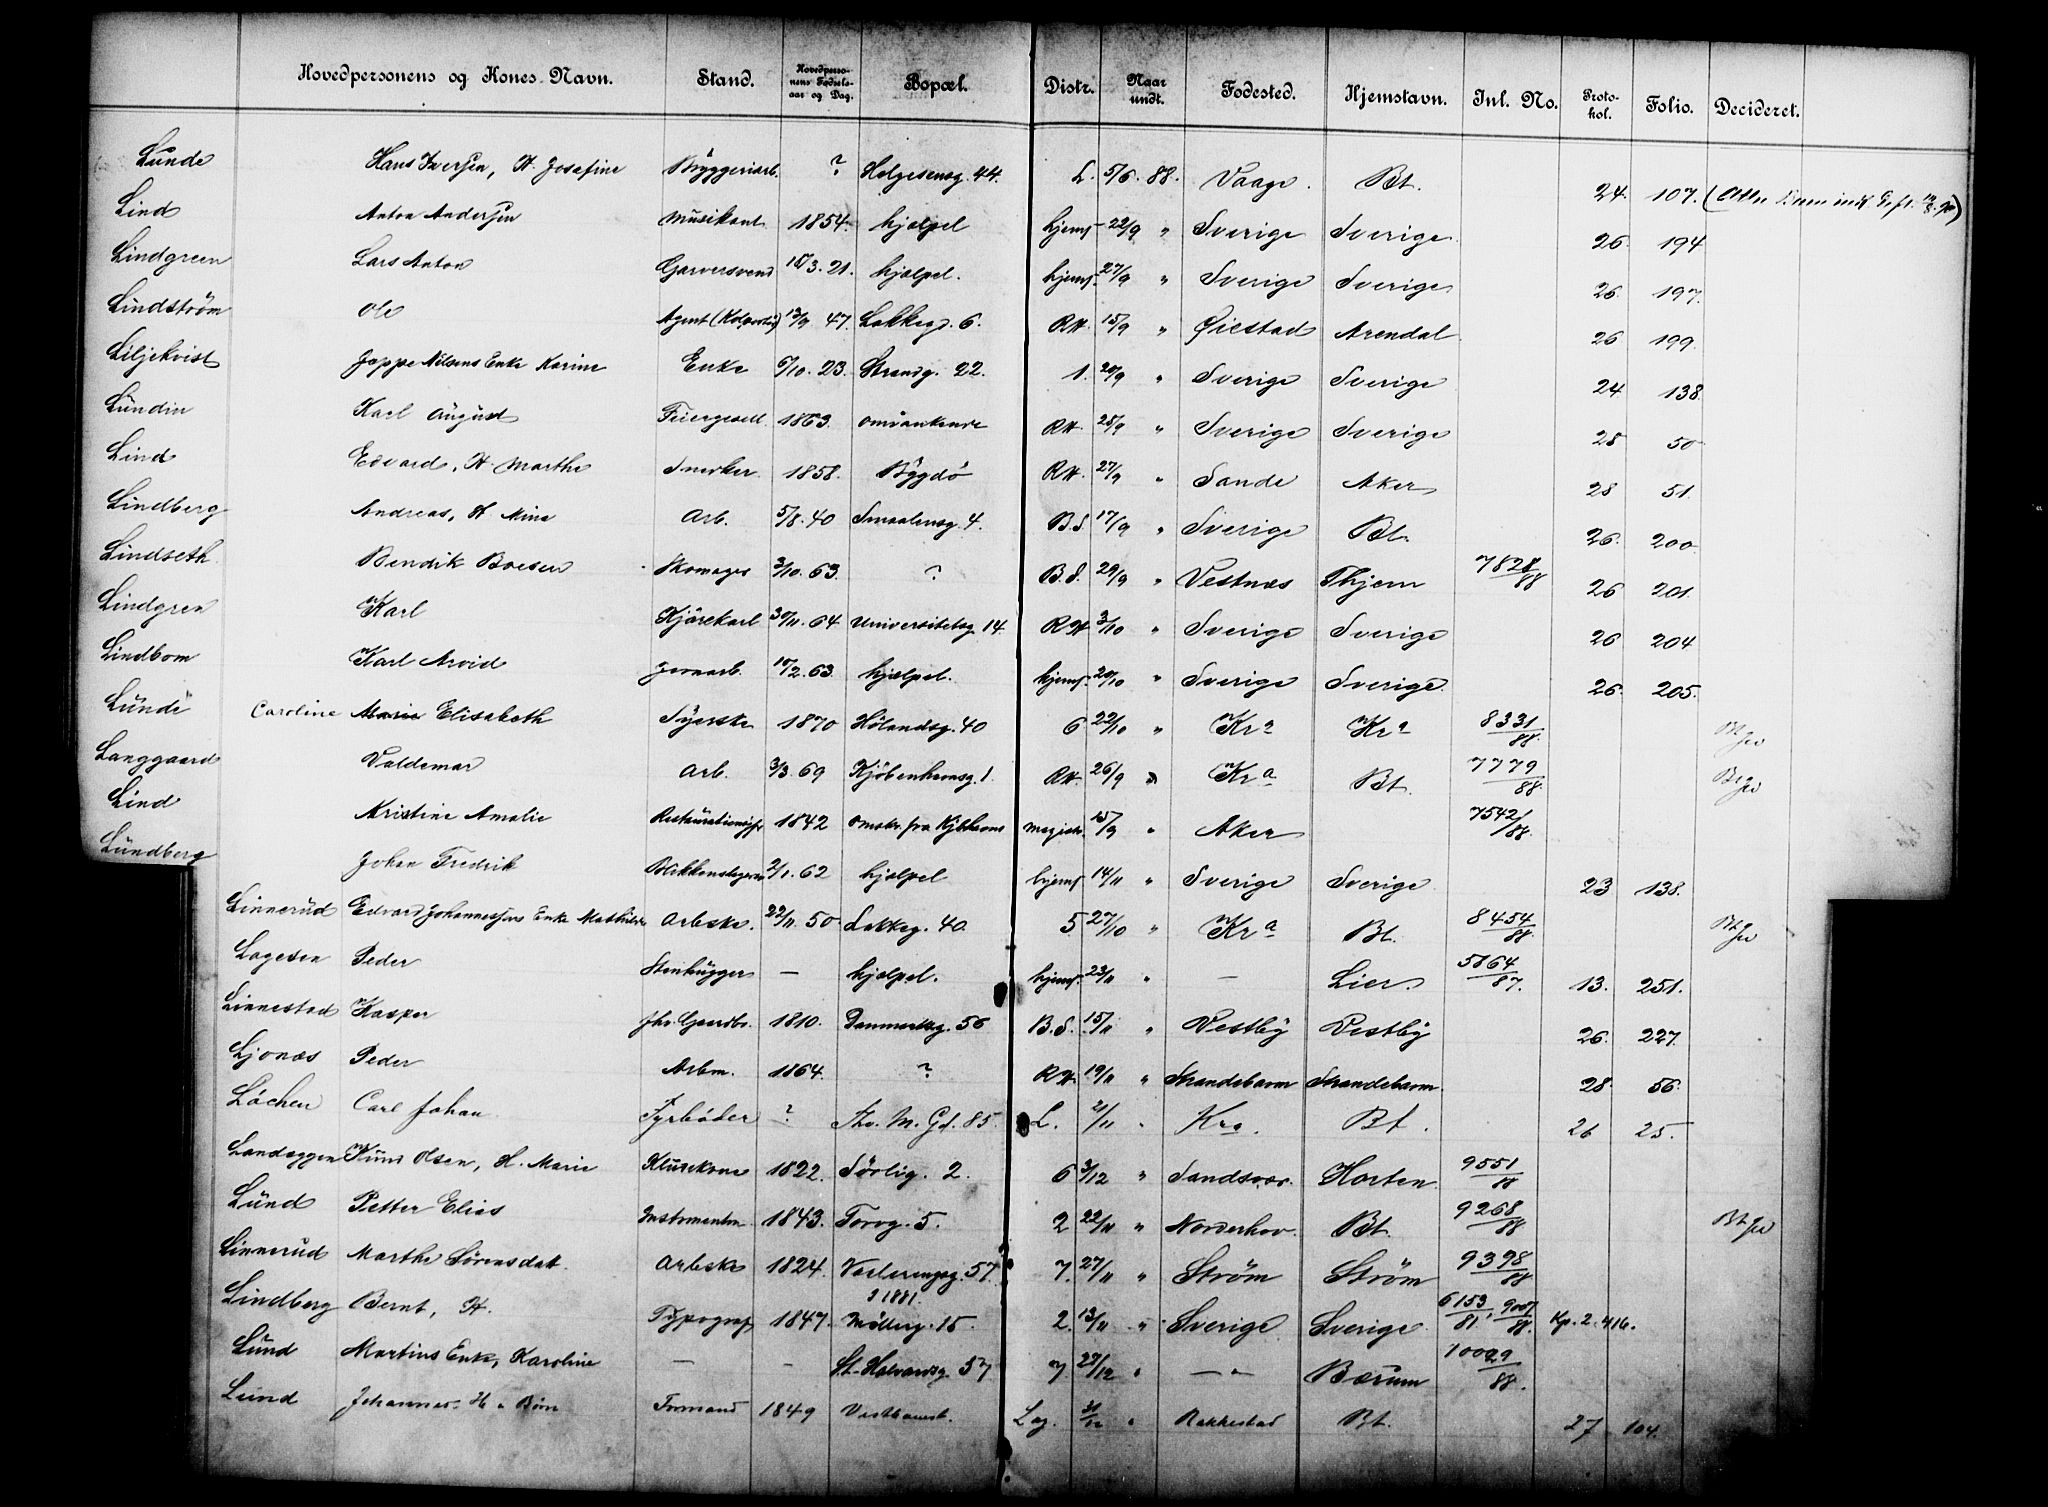 Hovedpersonens og Kones Navn. Stand. Hovedpersonens Fødselsaar og Dag. Bopæl. Distr. Naar undt. Fødested. Hjemstavn. Inl. No. Protokol. Folio. Decideret.
Lunde Hans Iversen, H. Josefine Bryggeriarb. ? Helgesensg. 44. L. 5/6. 88. Vaage. Bt. 24. 107.
Lind Anton Andersen Musikant 1854. hjælpel hjemf 22/9 " Sverige Sverige 26. 194
Lindgreen Lars Anton Garversvend 3. 21. hjælpel. hjemf. 27/9 " Sverige Sverige 26. 197.
Lindström Ole Agent 47. Lakkeg. 6. RH. 15/9 " Øiestad Arendal 26 199.
Liljekvist Jeppe Nilsens Enke Karine Enke 6/10. 23. Strandg. 22. 1. 20/9 " Sverige Sverige 24 138.
Lundin Karl August Feiergesell. 1863. omvankende RH. 25/9 " Sverige Sverige 28 50
Lind Edvard, H. Marthe Snerker 1858. Bygdö RH. 27/9 " Sande Aker 28 51.
Lindberg Andreas, H. Mina Arb. 5/8. 40 Smaalensg. 4. B.S. 17/9 " Sverige Bt. 26. 200.
Lindseth Bendik Boesen Skomager 3/10. 63. ? B.S. 29/9 " Vestnæs Thjem 7828/88 26 201.
Lindgren Karl Kjörekarl 30/11. 64 Universitetsg. 14. RH. 3/10 " Sverige Sverige 26 204
Lindbom Karl Arvid Jernarb. 2. 63. hjælpel. hjemf. 20/10 " Sverige Sverige. 26. 205.
Lunde Caroline Marie Elisabeth Syerske 1870 Hölandsg. 40 6 22/10 " Kra Kra 8331/88.
Langgaard Valdemar Arb. 3/3. 69 Kjöbenhavnsg. 1. RH. 26/9 " Kra Bt. 7779/88.
Lind Kristine Amalie 1842 magistr. 15/9 " Aker 7542/88.
Lundberg Johan Fredrik 2/1. 62 hjælpel hjemf 14/11 " Sverige Sverige 23 138.
Linnerud Edvard Johannesens Enke Mathilde Arbeske. 22/11. 50 Lakkeg. 40. 5 27/10 " Kra Bt. 8454/88.
Lagesen Peder Stenhugger — hjælpel. hjemf. 23/11 " — Lier. 5164/87. 13. 251.
Linnestad Kasper fhv. Gaardbr. 1810. Danmarksg. 56 B.S. 15/11 " Vestby Vestby 26. 227.
Ljonæs Peder Arbm. 1864. ? RH. 19/11 " Strandebarm Strandebarm 28. 56.
Löchen Carl Johan Fyrböder ? Thv. M. Gd. 85. L. 21/11 " Kra. Bt. 26 25.
Landeggen Knut Olsen, H. Marie 1822. Sörlig. 2. 6 3/12 " Sandsvær. Horten. 9551/88
Lund Petter Elias Instrumentm. 1843. Torvg. 5. 2 22/11 " Norderhov. Bt. 9268/88
Linnerud Marthe Sörensdat. Arbeske 1824. Vaalerengsg. 57. 7. 27/11 " Ström Ström 9398/88
Lindberg Bernt, H. Typograf 1847. Mölleg. 15 2. 13/11 " Sverige Sverige 6153/81, 9007/88. Kp. 2. 416.
Lund Martins Enke, Karoline — — St. Halvardsg. 57 7 27/12 " — " — Bærum 10029/88.
Lund Johannes. H. & Börn Formand 1849 Vestbanest. Lag. 31/12 " Rakkestad Bt. 27 104.